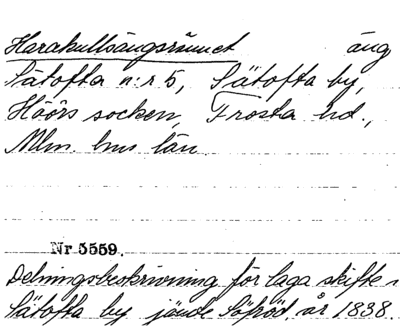 Harakullsängsrännet äng
Sätofta n:r 5, Sätofta by,
Höörs socken, Frosta hd.,
Mlm. hus län.
Nr 5559.
Delningsbeskrivning för laga skifte i
Sätofta by jämte Söröd år 1838.